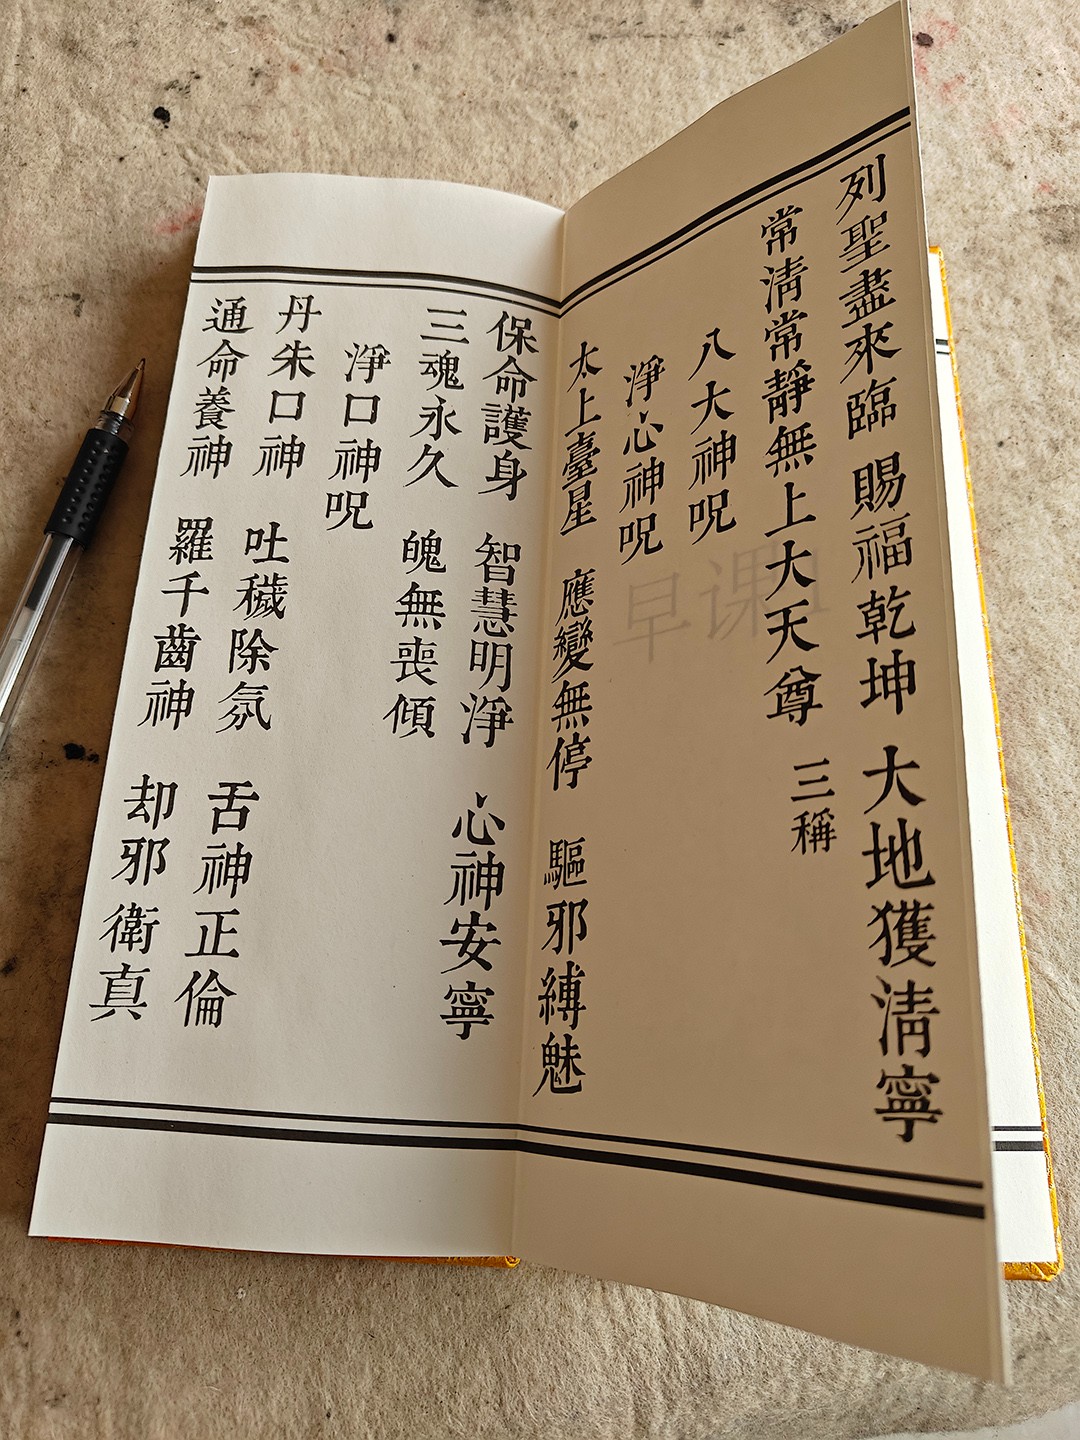 列聖盡來臨 賜福乾坤 大地獲淸寧
常淸常靜無上大天尊 三稱
八大神呪
淨心神呪
太上臺星 應變無停 驅邪縛魅
保命護身 智慧明淨 心神安寧
三魂永久 魄無喪傾
淨口神呪
丹朱口神 吐穢除氛 舌神正倫
通命養神 羅千齒神 却邪衛真
早课1